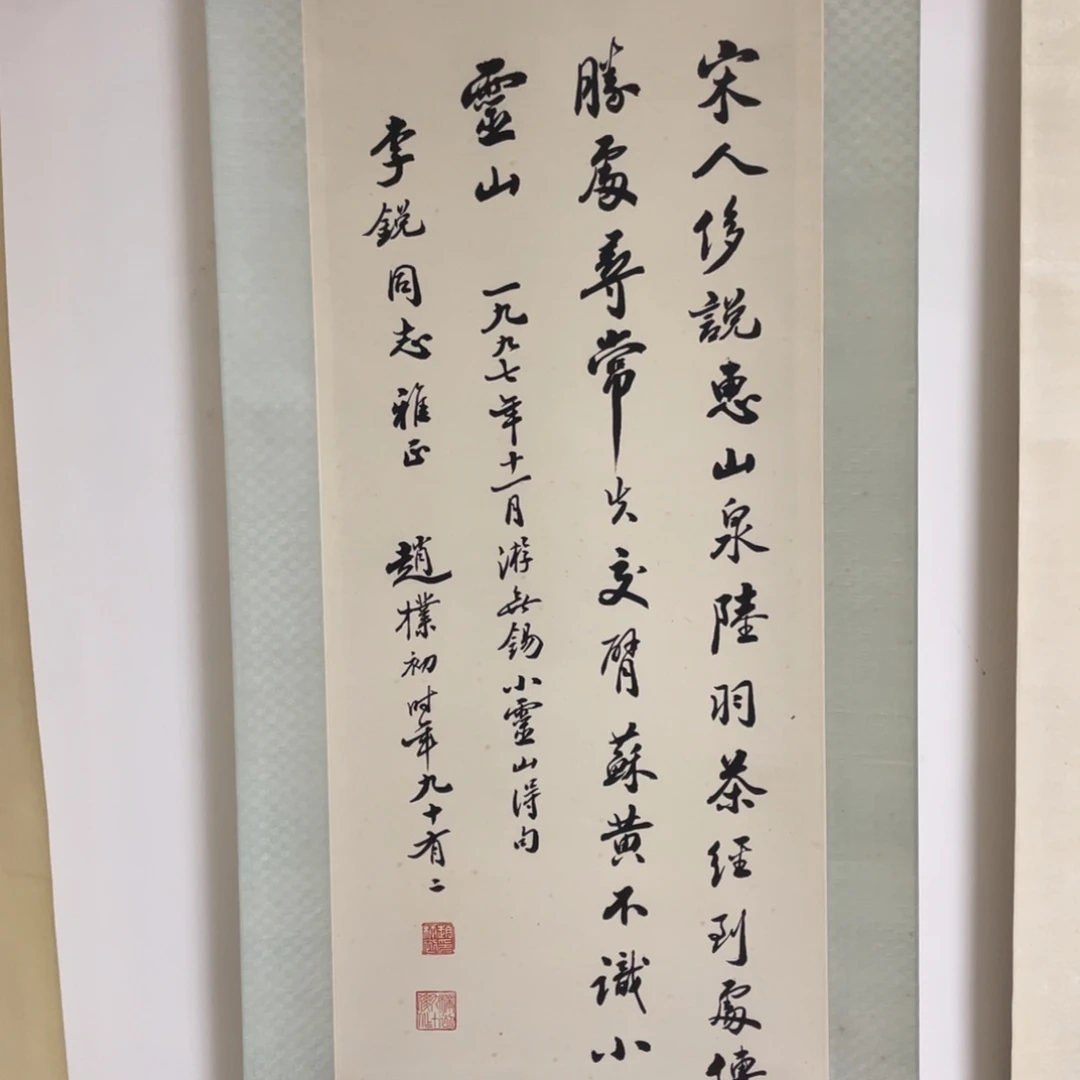 宋人侈説惠山泉陸羽茶經到處傳
勝處尋常失交臂蘇黃不識小
靈山 一九九七年十一月游無錫小靈山得句
李銳同志雅正 趙樸初时年九十有二